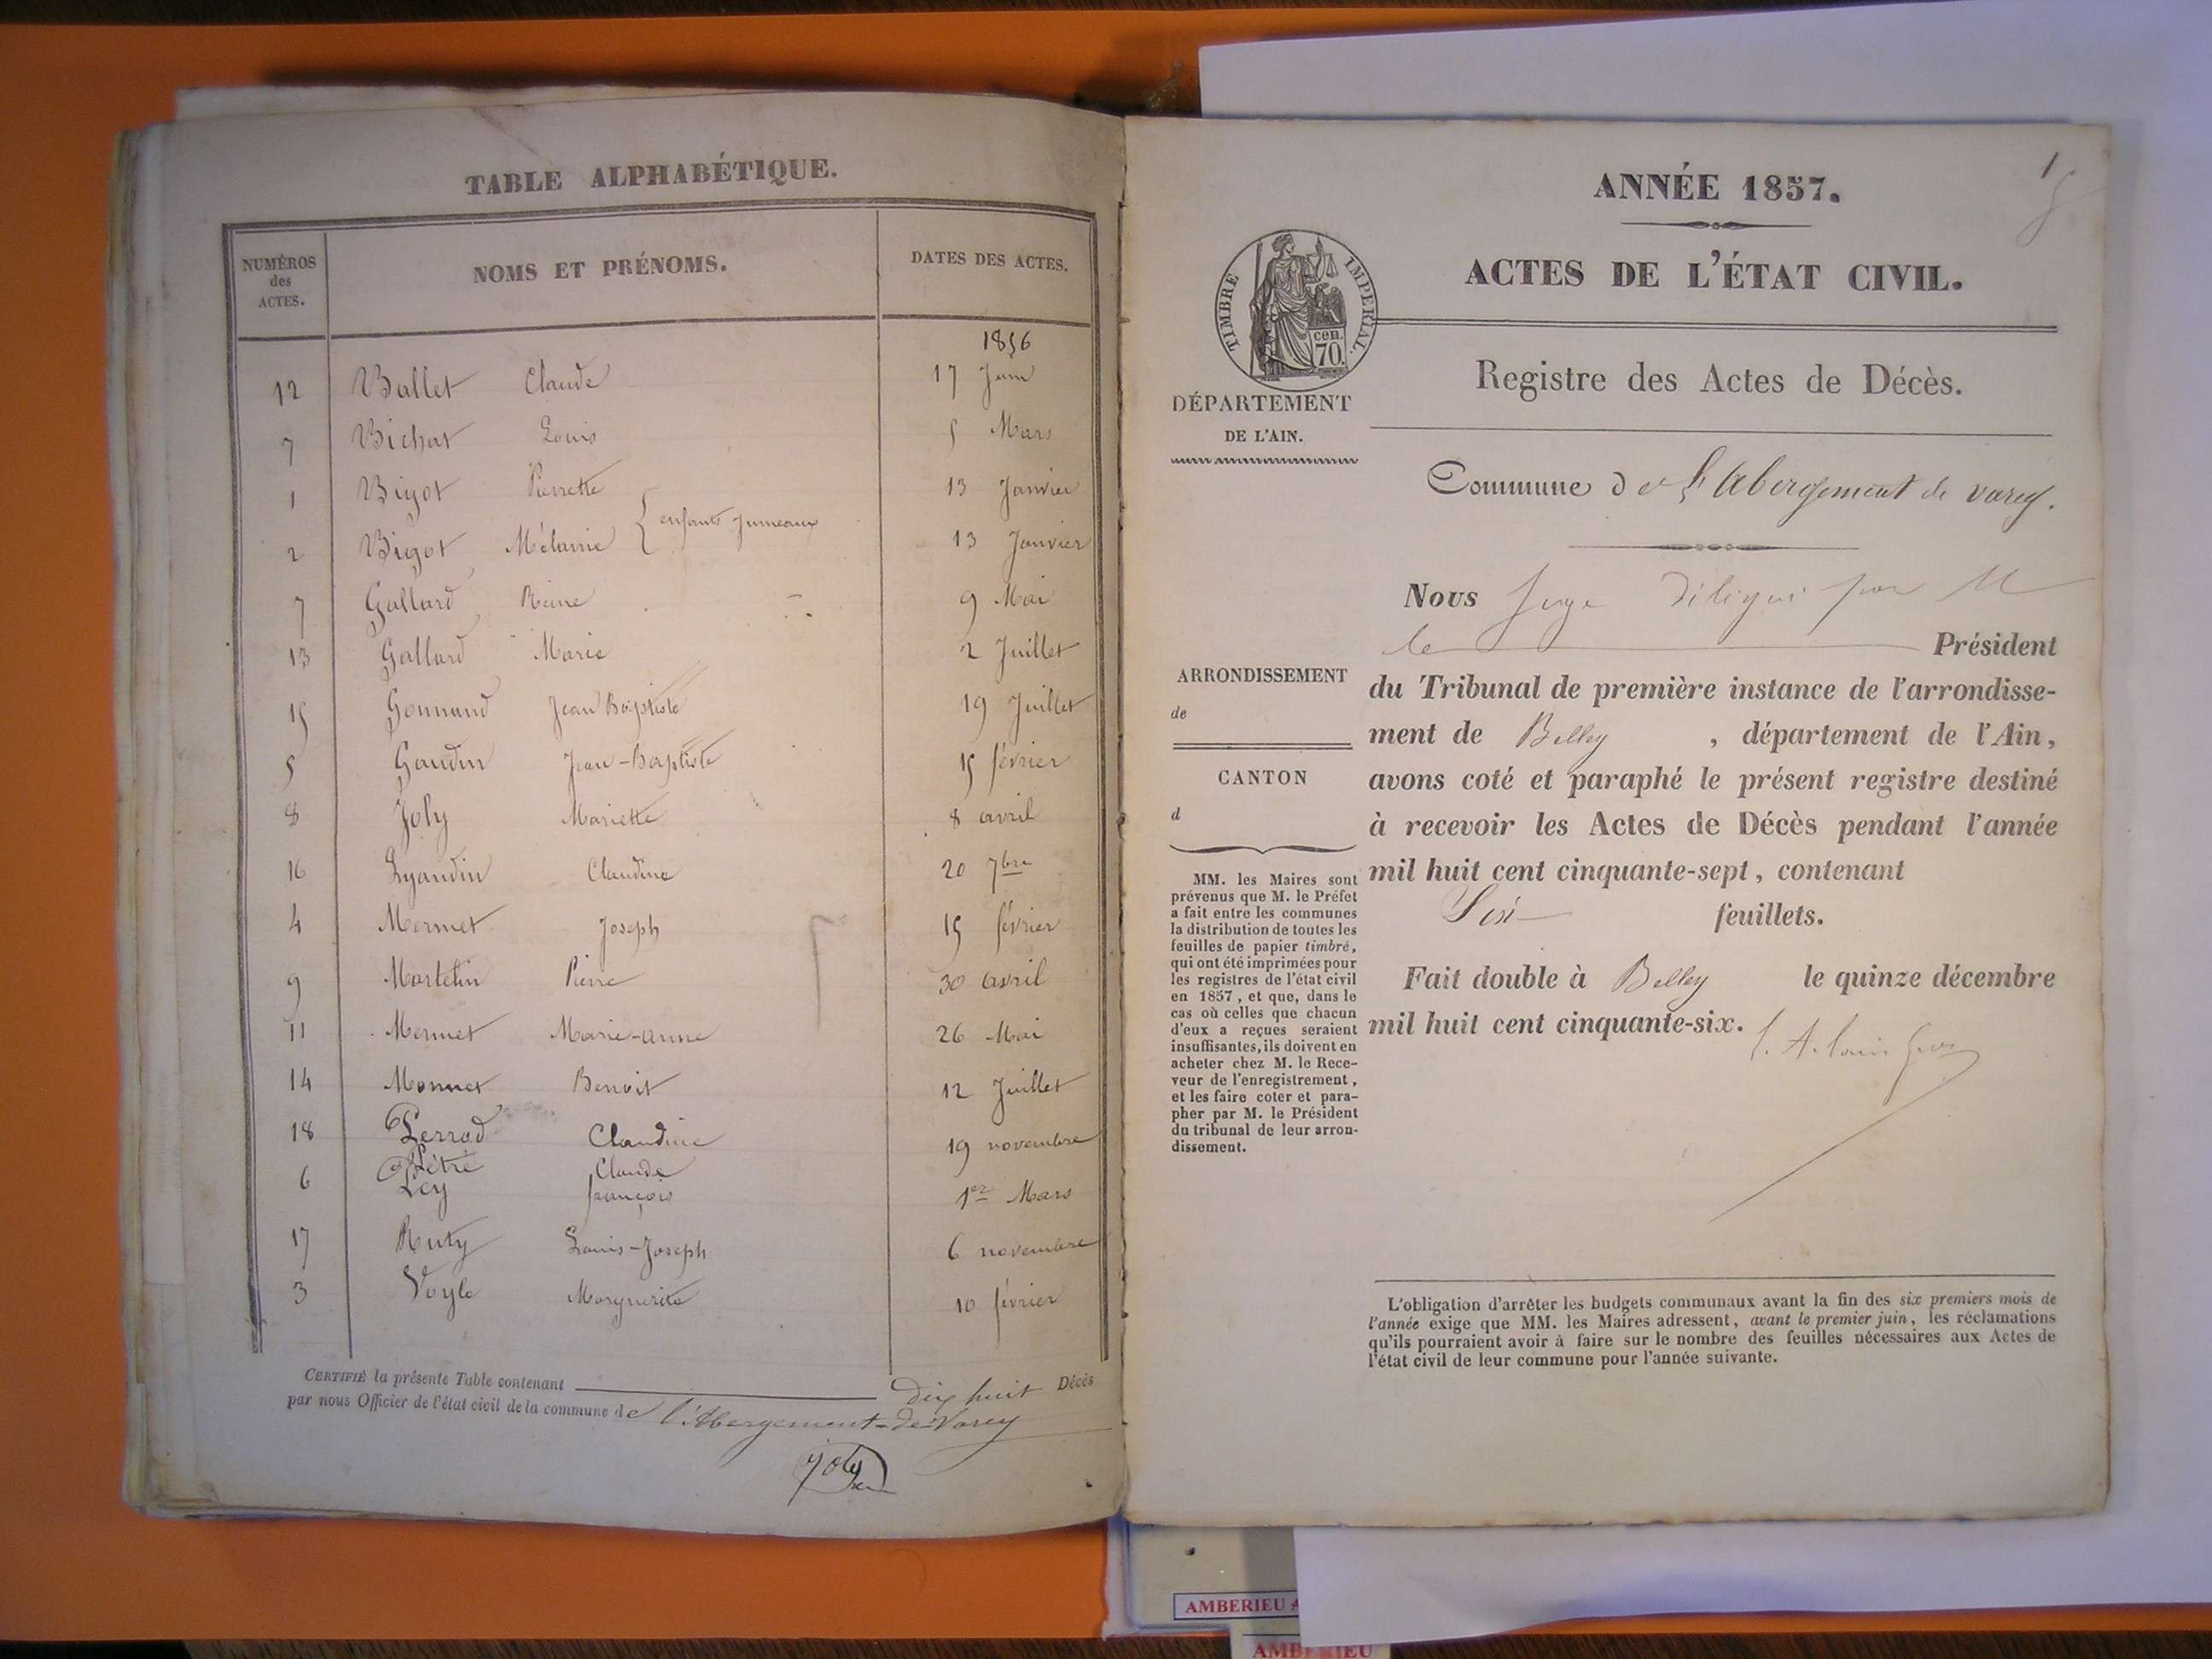 TABLE ALPHABÉTIQUE.
NUMÉROS
des
ACTES.
NOMS ET PRÉNOMS.
DATES DES ACTES.
1856
12 Ballet Claude 17 Juin
7 Bichat Louis 5 Mars
1 Bigot Pierrette 13 Janvier
2 Bigot Mélanie { enfants Jumeaux 13 Janvier
7 Gallard Reine 9 Mai
13 Gallard Marie 2 Juillet
15 Gonnand Jean Baptiste 19 Juillet
5 Gaudin Jean-Baptiste 15 février
8 Joly Mariette 8 avril
16 Lyaudin Claudine 20 7bre
4 Mermet Joseph 15 février
9 Martelin Pierre 30 avril
11 Mermet Marie-anne 26 Mai
14 Monnet Benoit 12 Juillet
18 Perrod Claudine 19 novembre
Pétré Claude
6 Pey françois 1er Mars
17 Ruty Louis-Joseph 6 novembre
3 Voyle Marguerite 10 février
CERTIFIÉ la présente Table contenant dix huit Décès
par nous Officier de l'état civil de la commune de l'Abergement-de-Varey
Joly
1
ANNÉE 1857.
ACTES DE L'ÉTAT CIVIL.
TIMBRE IMPERIAL.
cen.
70.
Registre des Actes de Décès.
DÉPARTEMENT
DE L'AIN.
Commune de L'Abergement de varey.
Nous Juge délégué par M
le Président
du Tribunal de première instance de l'arrondisse-
ment de Belley , département de l'Ain,
avons coté et paraphé le présent registre destiné
à recevoir les Actes de Décès pendant l'année
mil huit cent cinquante-sept, contenant
Six feuillets.
Fait double à Belley le quinze décembre
mil huit cent cinquante-six.
ARRONDISSEMENT
de
CANTON
d
MM. les Maires sont
prévenus que M. le Préfet
a fait entre les communes
la distribution de toutes les
feuilles de papier timbré,
qui ont été imprimées pour
les registres de l'état civil
en 1857, et que, dans le
cas où celles que chacun
d'eux a reçues seraient
insuffisantes, ils doivent en
acheter chez M. le Rece-
veur de l'enregistrement,
et les faire coter et para-
pher par M. le Président
du tribunal de leur arron-
dissement.
L'obligation d'arrêter les budgets communaux avant la fin des six premiers mois de
l'année exige que MM. les Maires adressent, avant le premier juin, les réclamations
qu'ils pourraient avoir à faire sur le nombre des feuilles nécessaires aux Actes de
l'état civil de leur commune pour l'année suivante.
AMBERIEU
AMBERIEU